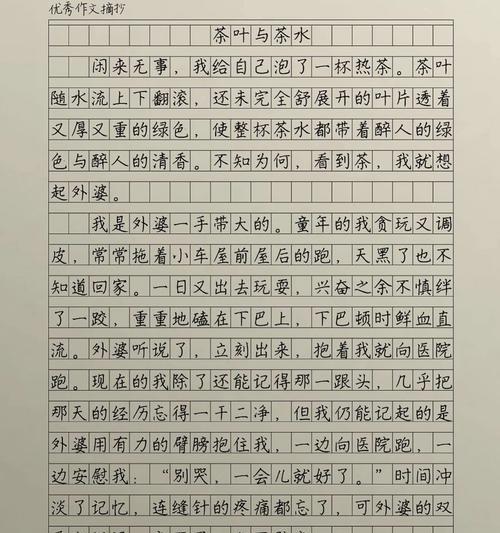 优秀作文摘抄
茶叶与茶水
闲来无事，我给自己泡了一杯热茶。茶叶
随水流上下翻滚，还未完全舒展开的叶片透着
又厚又重的绿色，使整杯茶水都带着醉人的绿
色与醉人的清香。不知为何，看到茶，我就想
起外婆。
我是外婆一手带大的。童年的我贪玩又调
皮，常常拖着小车屋前屋后的跑，天黑了也不
知道回家。一日又出去玩耍，兴奋之余不慎绊
了一跤，重重地磕在下巴上，下巴顿时鲜血直
流。外婆听说了，立刻出来，抱着我就向医院
跑。现在的我除了还能记得那一跟头，几乎把
那天的经历忘得一干二净，但我仍能记起的是
外婆用有力的臂膀抱住我，一边向医院跑，一
边安慰我：“别哭，一会儿就好了。”时间冲
淡了记忆，连缝针的疼痛都忘了，可外婆的双